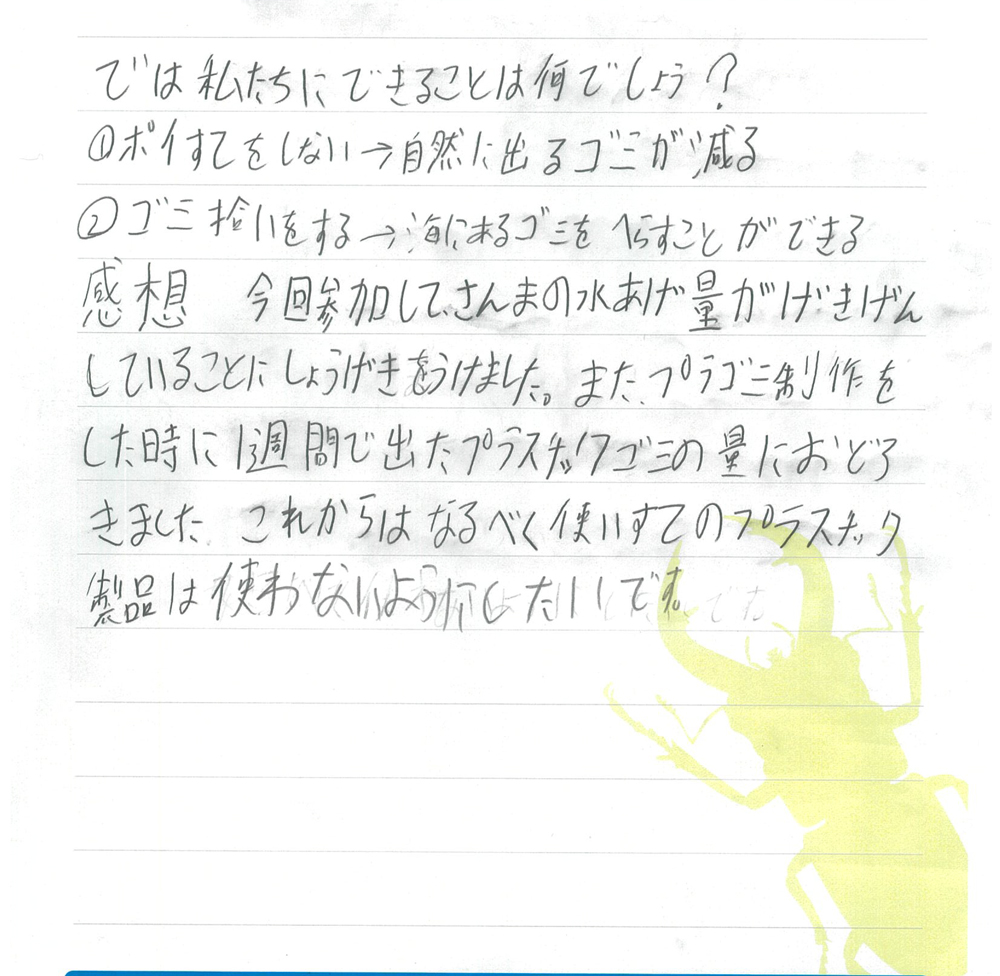 では私たちにできることは何でしょう?
①ポイすてをしない→自然に出るゴミが減る
②ゴミ拾いをする→海にあるゴミをへらすことができる
感想 今回参加して、さんまの水あげ量がげきげん
していることにしょうげきをうけました。また、プラゴミ制作を
した時に1週間で出たプラスチックゴミの量におどろ
きました。これからはなるべく使いすてのプラスチック
製品は使わないようにしたいです。